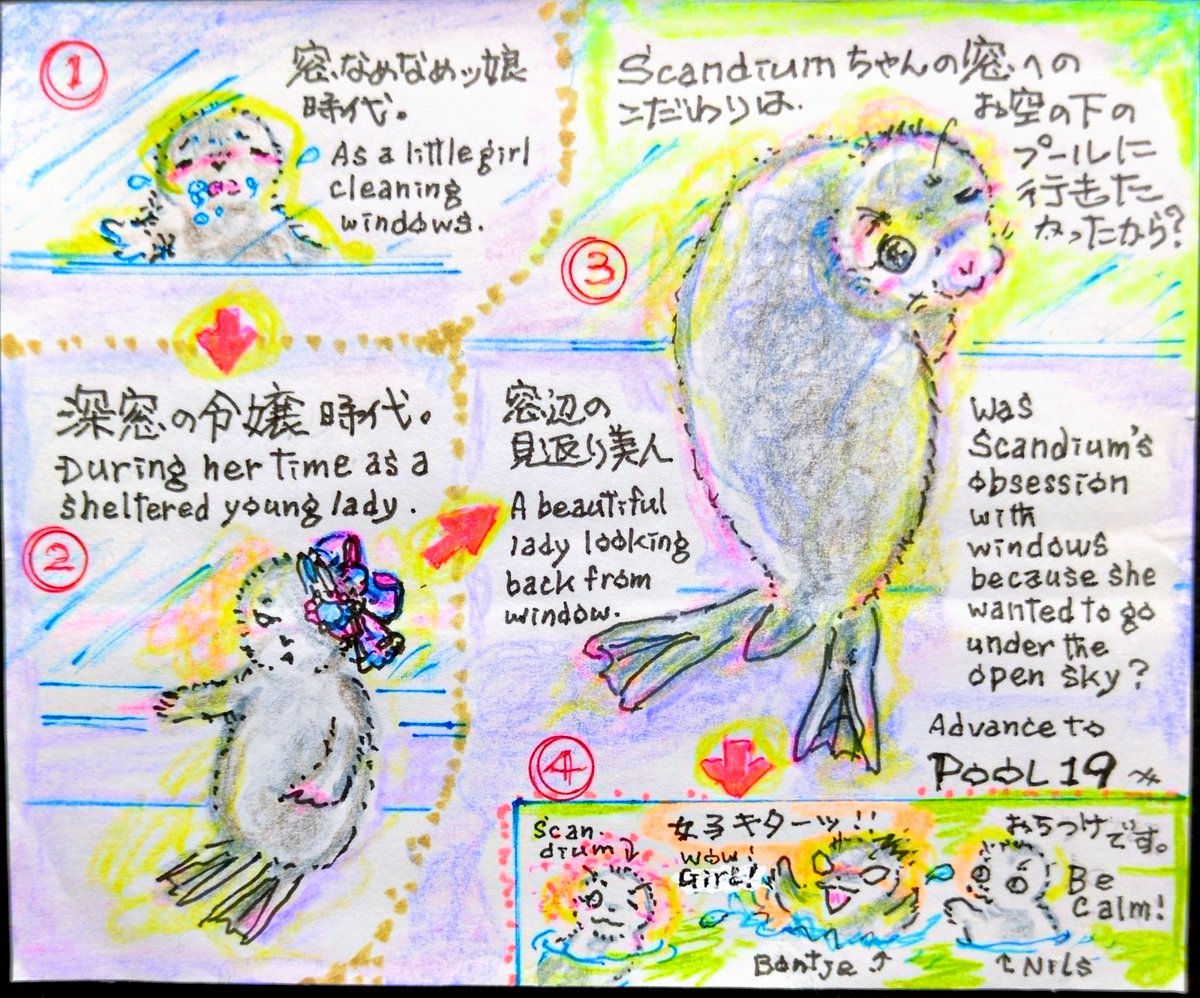 ①
窓なめなめッ娘
時代。
As a little girl
cleaning
windows.
深窓の令嬢時代。
During her time as a
sheltered young lady.
②
Scandiumちゃんの窓への
こだわりは、
お空の下の
プールに
行きたく
なったから?
③
窓辺の
見返り美人
A beautiful
lady looking
back from
window.
Was
Scandium's
obsession
with
windows
because she
wanted to go
under the
open sky?
Advance to
POOL 19
④
Scan-
dium
女子キターッ!!
Wow!
Girl!
Bontje
おちつけです。
Be
Calm!
Nils